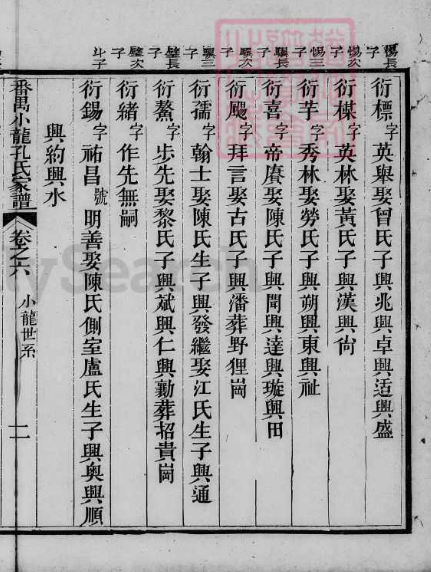 惕長子
衍標字英舉娶曾氏子興兆興卓興适興盛
惕次子
衍楳字英林娶黃氏子興漢興尙
惕三子
衍芋字秀林娶勞氏子興朔興東興祉
驥長子
衍喜字帝賡娶陳氏子興聞興達興璇興田
驥次子
衍颺字拜言娶古氏子興潘葬野狸崗
驥三子
衍孺字翰士娶陳氏生子興發繼娶江氏生子興通
璧長子
衍鰲字步先娶黎氏子興斌興仁興勷葬招貴崗
璧次子
衍緒字作先無嗣
斗子
衍錫字祐昌號明善娶陳氏側室盧氏生子興奥興順
興約興水
番禺小龍孔氏家譜
卷之六
小龍世系
二